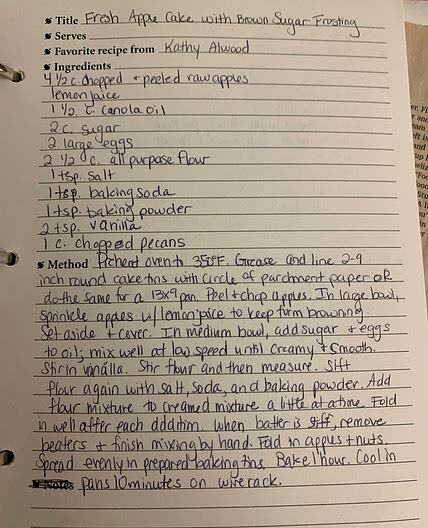 Title Fresh Apple Cake with Brown Sugar Frosting
Serves
Favorite recipe from Kathy Alwood
Ingredients
4 1/2 c. chopped + peeled raw apples
lemon juice
1 1/2 c. canola oil
2 c. sugar
2 large eggs
2 1/2 c. all purpose flour
1 tsp. salt
1 tsp. baking soda
1 tsp. baking powder
2 tsp. vanilla
1 c. chopped pecans
Method Preheat oven to 350°F. Grease and line 2-9
inch round cake tins with circle of parchment paper OR
do the same for a 13x9 pan. Peel + chop apples. In large bowl,
sprinkle apples w/ lemon juice to keep form browning.
Set aside + cover. In medium bowl, add sugar + eggs
to oil; mix well at low speed until creamy + smooth.
Stir in vanilla. Stir flour and then measure. Sift
flour again with salt, soda, and baking powder. Add
flour mixture to creamed mixture a little at a time. Fold
in well after each addition. When batter is stiff, remove
beaters + finish mixing by hand. Fold in apples + nuts.
Spread evenly in prepared baking tins. Bake 1 hour. Cool in
Notes pans 10 minutes on wire rack.